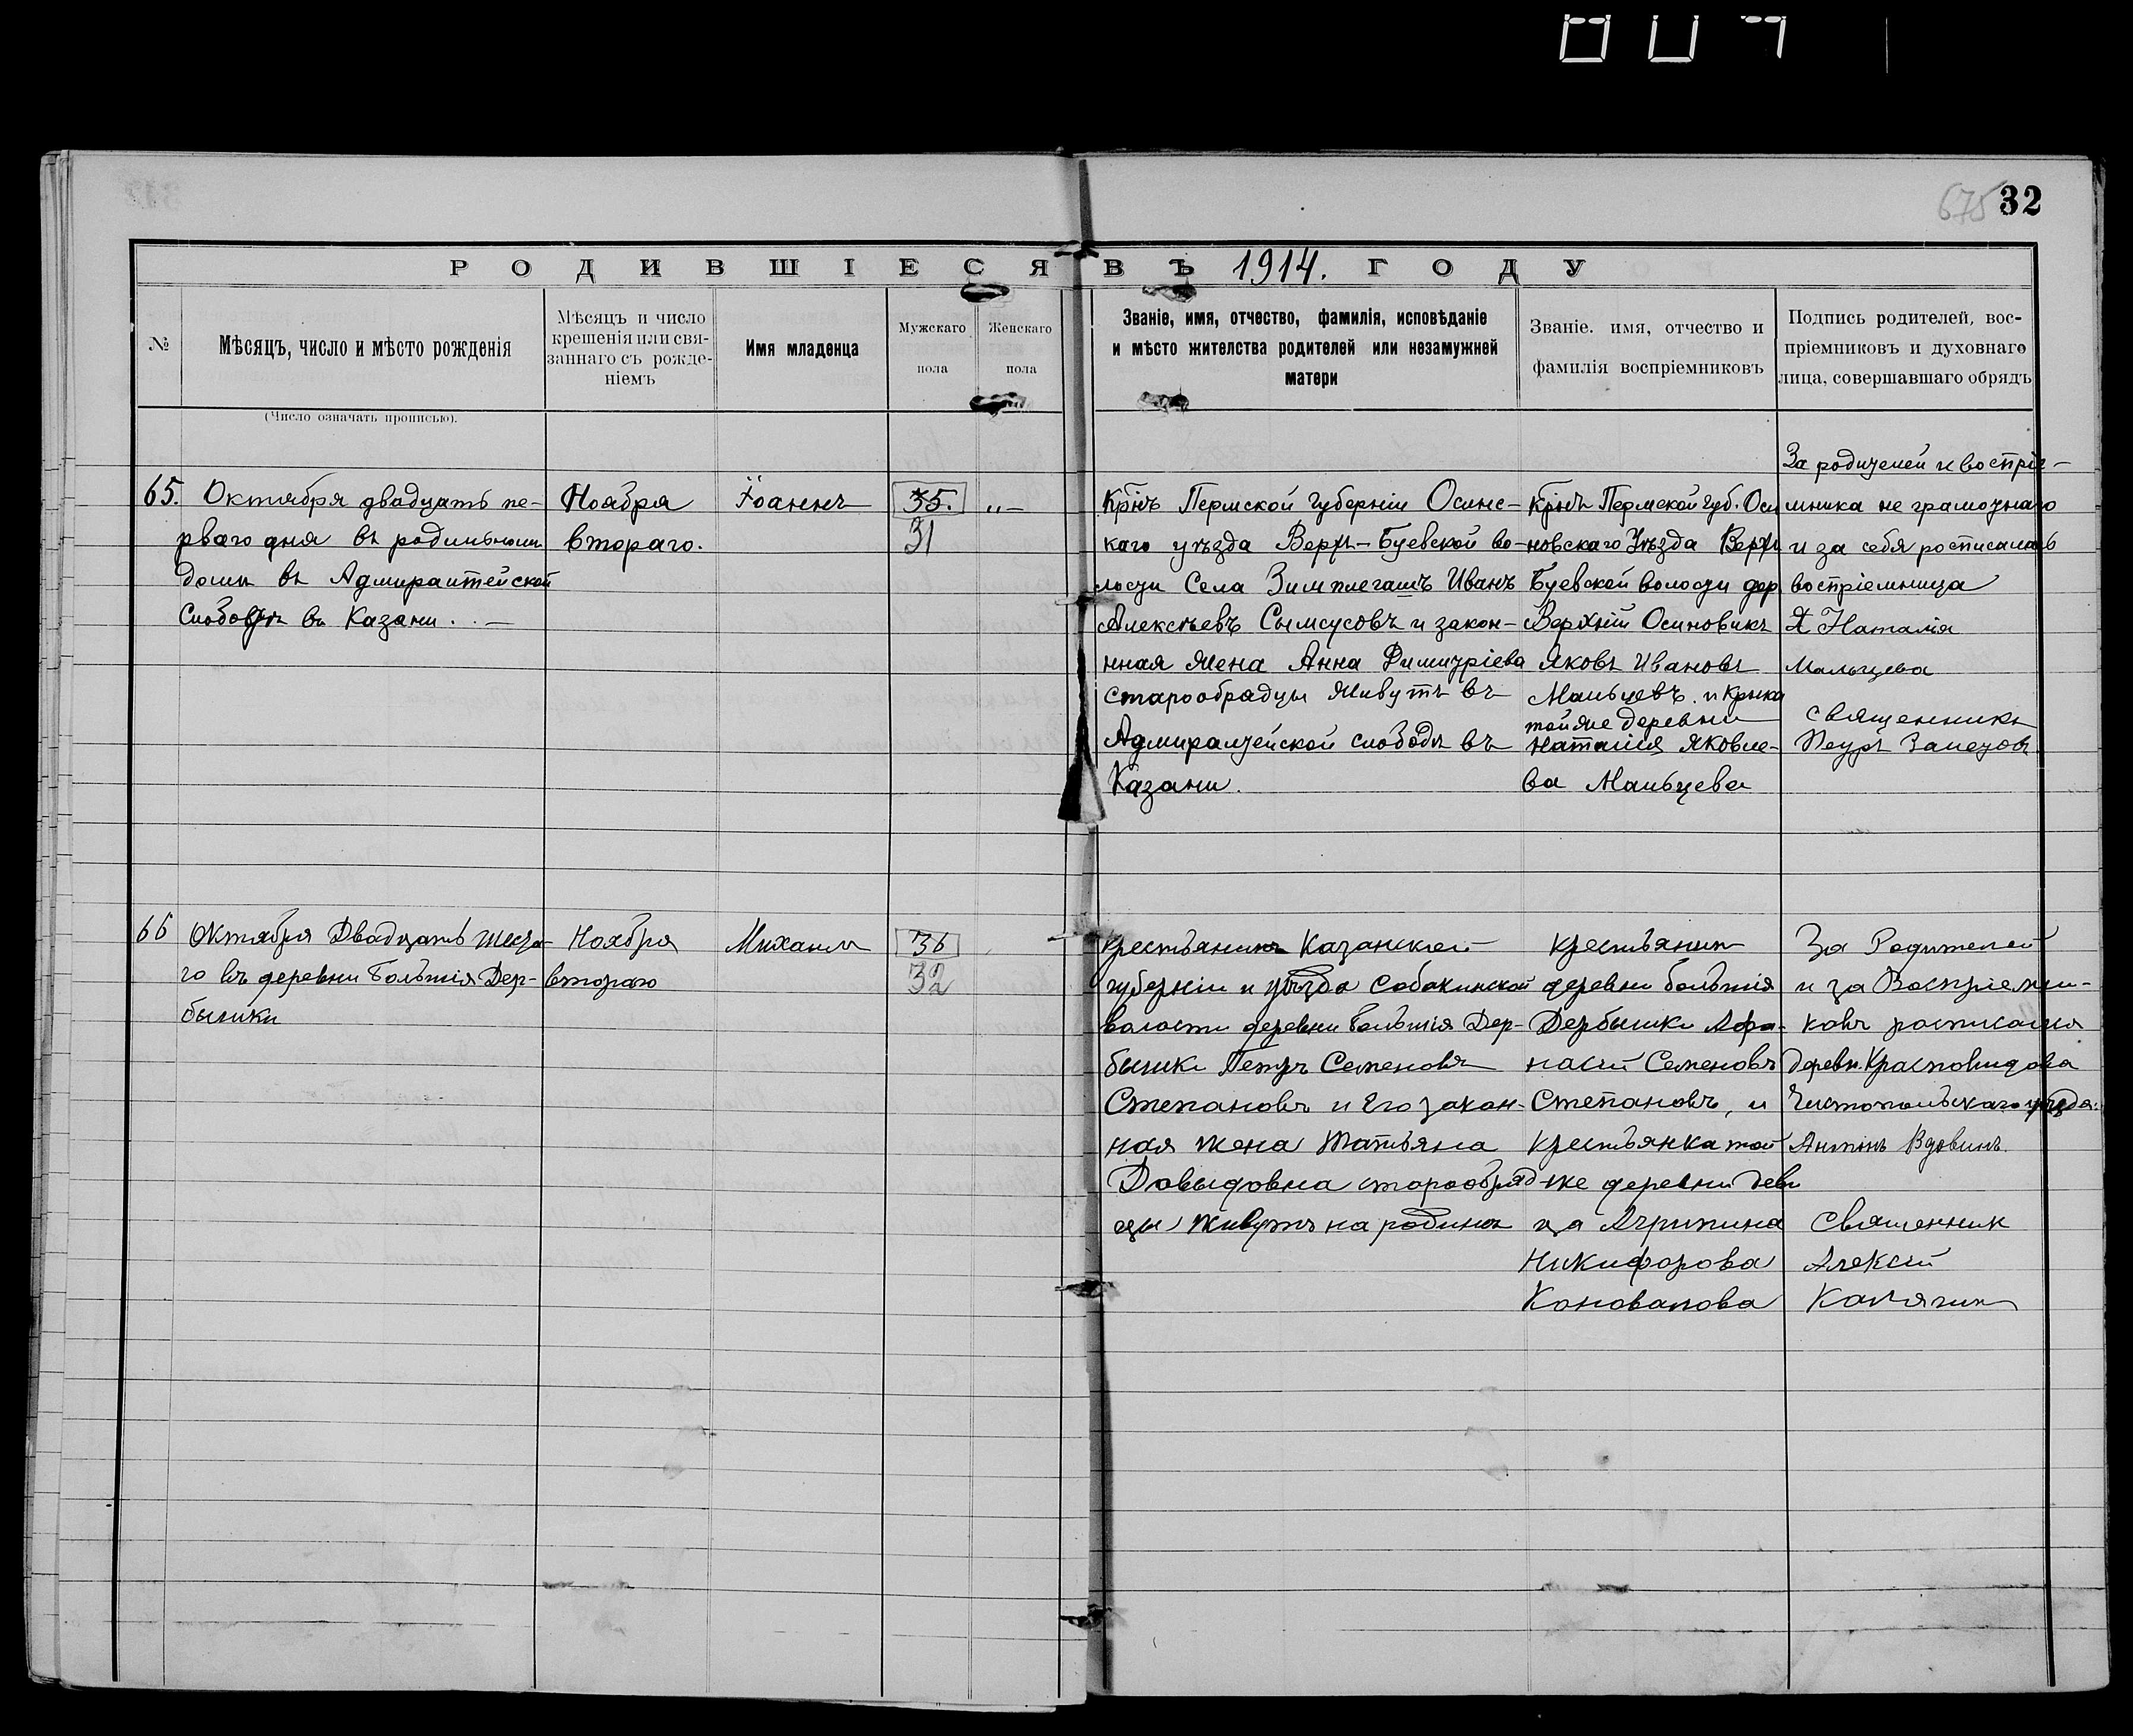 675 32
РОДИВШІЕСЯ ВЪ 1914. ГОДУ
№
Мѣсяцъ, число и мѣсто рожденія
(Число означать прописью).
Мѣсяцъ и число
крещенія или свя-
заннаго съ рожде-
ніемъ
Имя младенца
Мужскаго
пола
Женскаго
пола
Званіе, имя, отчество, фамилія, исповѣданіе
и мѣсто жителства родителей или незамужней
матери
Званіе. имя, отчество и
фамилія воспріемниковъ
Подпись родителей, вос-
пріемниковъ и духовнаго
лица, совершавшаго обрядъ
65.
Октября двадцать пе-
рваго дня въ родильномъ
домѣ въ Адмиралтейской
Слободѣ въ Казани. . —
Ноября
втораго.
Іоаннъ
35.
31
„ —
Крнъ Пермской губерніи Осинс-
каго уѣзда Верхъ-Буевской во-
лости Села Иванъ
Алексѣевъ и закон-
нная жена Анна Димитріева
старообрядцы живутъ въ
Адмиралтейской слободѣ въ
Казани.
Крнъ Пермской губ. Оси
новскаго Уѣзда Верхъ
Буевской волости дер
Верхній Осиновикъ
Яковъ Ивановъ
Мальцевъ. и крнка
той же деревни
Наталія Яковле-
ва Мальцева
За родителей и воспріе-
мника не грамотнаго
и за себя росписалась
воспріемница
Наталія
Мальцева
священникъ
Петръ Залетовъ
66
Октября Двадцать шеста-
го въ деревни Большія Дер-
бышки
Ноября
втораго
Михаилъ
36
32
Крестьянинъ Казанской
губерніи и уѣзда Собакинской
волости деревни Большія Дер-
бышки Петръ Семеновъ
Степановъ и Его закон-
ная жена Татьяна
Довыдовна старообряд-
цы живутъ на родинѣ
Крестьянин
деревни большія
Дербышки Афа-
насій Семеновъ
Степановъ, и
крестьянка той
же деревни деви
ца Агрипина
Никифорова
Коновалова
За Родителей
и за Воспріемни-
ковъ росписался
деревн. Красновидова
Чистопольскаго уѣзда.
Антонъ Вдовинъ.
Священник
Алексій
Калягин